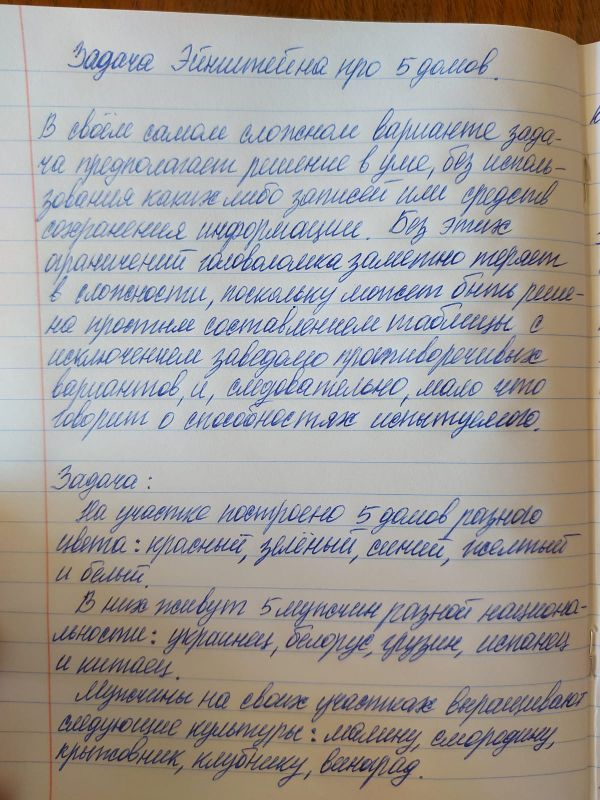 Задача Эйнштейна про 5 домов.
В своём самом сложном варианте зада-
ча предполагает решение в уме, без исполь-
зования каких либо записей или средств
сохранения информации. Без этих
ограничений головоломка заметно теряет
в сложности, поскольку может быть реше-
на простым составлением таблицы с
исключением заведомо противоречивых
вариантов, и, следовательно, мало что
говорит о способностях испытуемого.
Задача:
На участке построено 5 домов разного
цвета: красный, зелёный, синий, желтый
и белый.
В них живут 5 мужчин разной национа-
льности: украинец, белорус, грузин, испанец
и китаец.
Мужчины на своих участках выращивают
следующие культуры: малину, смородину,
крыжовник, клубнику, виноград.